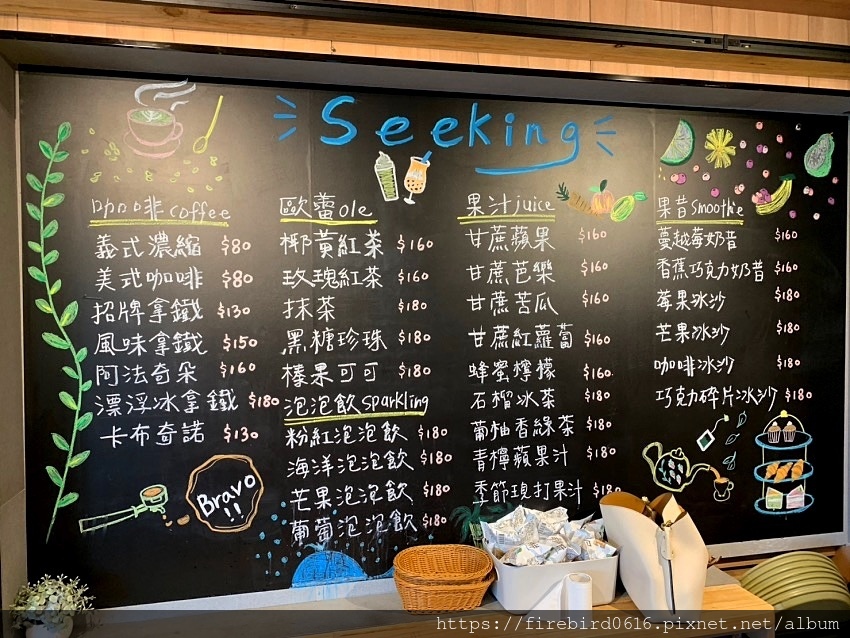 Seeking
咖啡coffee
義式濃縮 $80
美式咖啡 $80
招牌拿鐵 $130
風味拿鐵 $150
阿法奇朵 $160
漂浮冰拿鐵 $180
卡布奇諾 $130
Bravo
!!
歐蕾ole
椰黃紅茶 $160
玫瑰紅茶 $160
抹茶 $180
黑糖珍珠 $180
榛果可可 $180
泡泡飲sparkling
粉紅泡泡飲 $180
海洋泡泡飲 $180
芒果泡泡飲 $180
葡萄泡泡飲 $180
果汁juice
甘蔗蘋果 $160
甘蔗芭樂 $160
甘蔗苦瓜 $160
甘蔗紅蘿蔔 $160
蜂蜜檸檬 $160
石榴冰茶 $180
葡柚香綠茶 $180
青檸蘋果汁 $180
季節現打果汁 $180
果昔smoothie
蔓越莓奶昔 $160
香蕉巧克力奶昔 $160
莓果冰沙 $180
芒果冰沙 $180
咖啡冰沙 $180
巧克力碎片冰沙 $180
https://firebird0616.pixnet.net/album